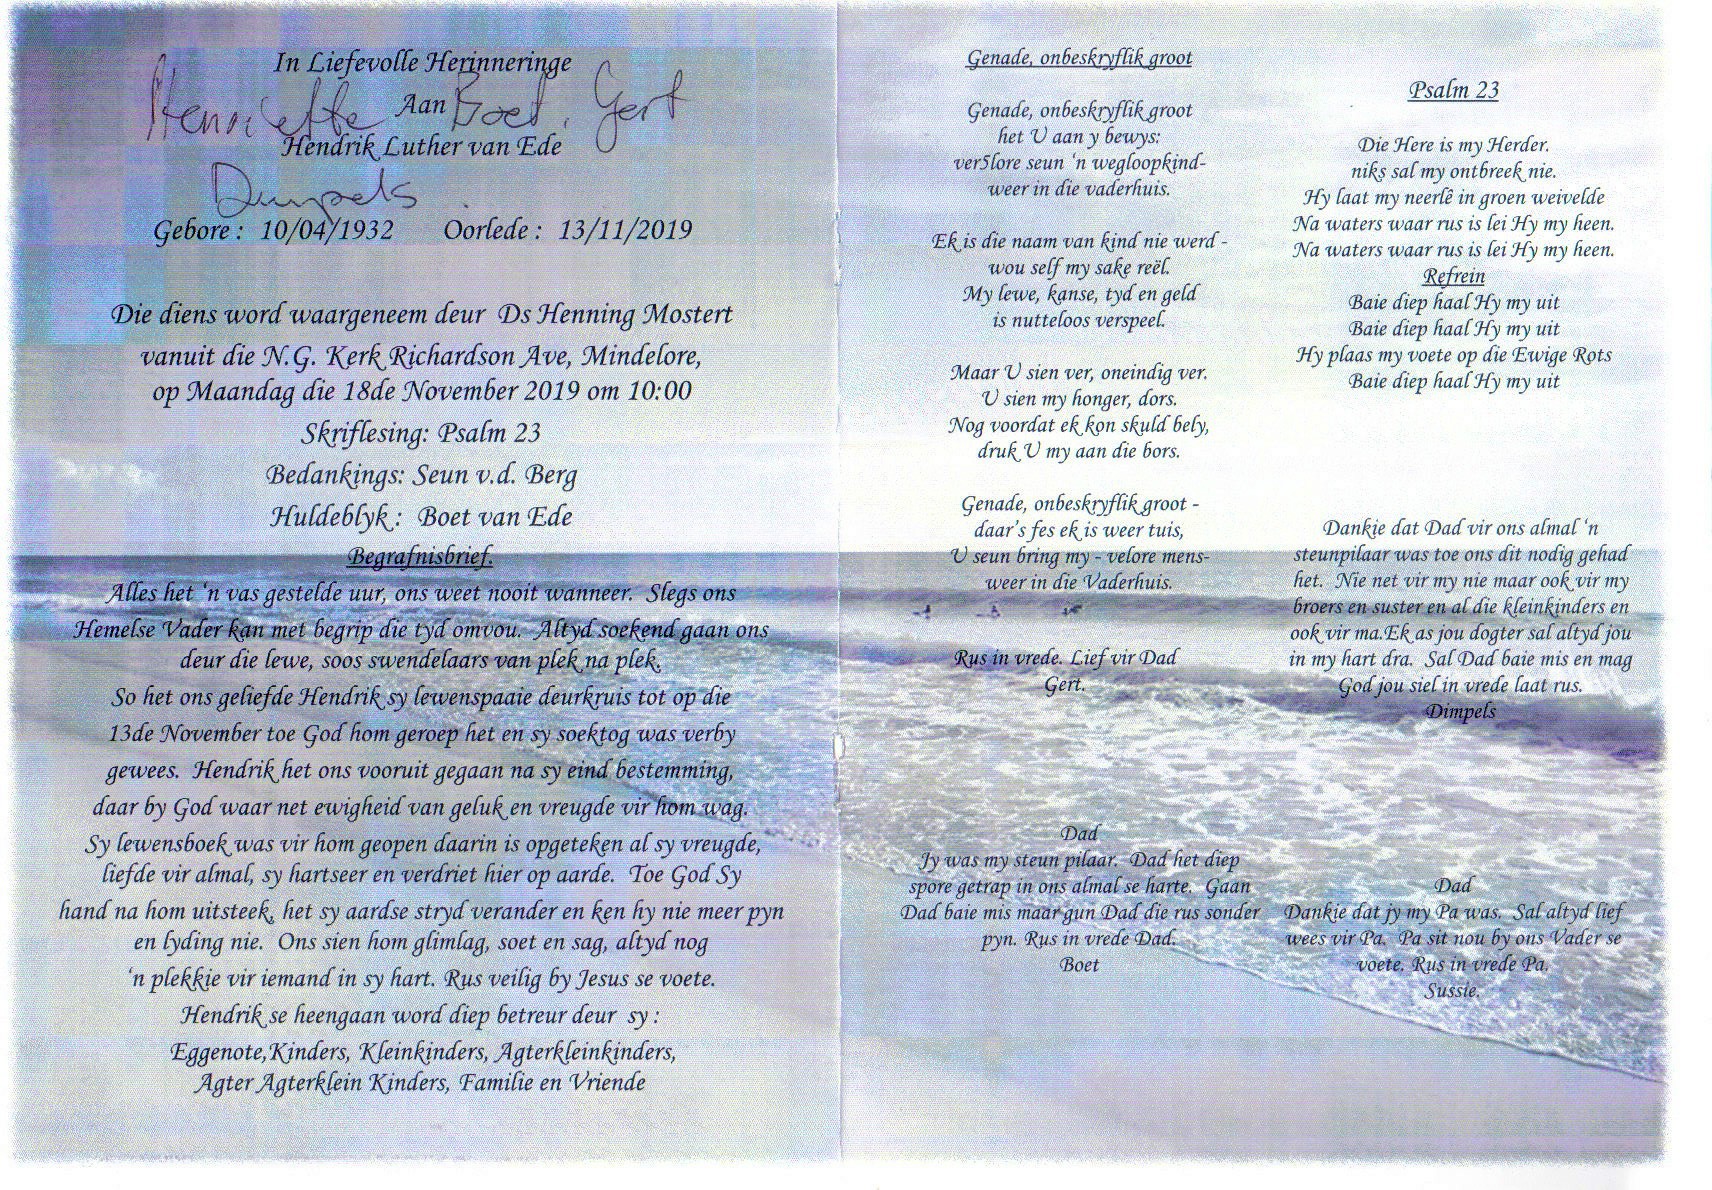 In Liefevolle Herinneringe
Henriette Aan Boet. Gert
Hendrik Luther van Ede
Dumpels
Gebore : 10/04/1932 Oorlede : 13/11/2019
Die diens word waargeneem deur Ds Henning Mostert
vanuit die N.G. Kerk Richardson Ave, Mindelore,
op Maandag die 18de November 2019 om 10:00
Skriflesing: Psalm 23
Bedankings: Seun v.d. Berg
Huldeblyk : Boet van Ede
Begrafnisbrief.
Alles het ‘n vas gestelde uur, ons weet nooit wanneer. Slegs ons
Hemelse Vader kan met begrip die tyd omvou. Altyd soekend gaan ons
deur die lewe, soos swendelaars van plek na plek.
So het ons geliefde Hendrik sy lewenspaaie deurkruis tot op die
13de November toe God hom geroep het en sy soektog was verby
gewees. Hendrik het ons vooruit gegaan na sy eind bestemming,
daar by God waar net ewigheid van geluk en vreugde vir hom wag.
Sy lewensboek was vir hom geopen daarin is opgeteken al sy vreugde,
liefde vir almal, sy hartseer en verdriet hier op aarde. Toe God Sy
hand na hom uitsteek, het sy aardse stryd verander en ken hy nie meer pyn
en lyding nie. Ons sien hom glimlag, soet en sag, altyd nog
‘n plekkie vir iemand in sy hart. Rus veilig by Jesus se voete.
Hendrik se heengaan word diep betreur deur sy :
Eggenote,Kinders, Kleinkinders, Agterkleinkinders,
Agter Agterklein Kinders, Familie en Vriende
Genade, onbeskryflik groot
Genade, onbeskryflik groot
het U aan y bewys:
ver5lore seun ‘n wegloopkind-
weer in die vaderhuis.
Ek is die naam van kind nie werd -
wou self my sake reël.
My lewe, kanse, tyd en geld
is nutteloos verspeel.
Maar U sien ver, oneindig ver.
U sien my honger, dors.
Nog voordat ek kon skuld bely,
druk U my aan die bors.
Genade, onbeskryflik groot -
daar’s fes ek is weer tuis,
U seun bring my - velore mens-
weer in die Vaderhuis.
Rus in vrede. Lief vir Dad
Gert.
Dad
Jy was my steun pilaar. Dad het diep
spore getrap in ons almal se harte. Gaan
Dad baie mis maar gun Dad die rus sonder
pyn. Rus in vrede Dad.
Boet
Psalm 23
Die Here is my Herder.
niks sal my ontbreek nie.
Hy laat my neerlê in groen weivelde
Na waters waar rus is lei Hy my heen.
Na waters waar rus is lei Hy my heen.
Refrein
Baie diep haal Hy my uit
Baie diep haal Hy my uit
Hy plaas my voete op die Ewige Rots
Baie diep haal Hy my uit
Dankie dat Dad vir ons almal ‘n
steunpilaar was toe ons dit nodig gehad
het. Nie net vir my nie maar ook vir my
broers en suster en al die kleinkinders en
ook vir ma.Ek as jou dogter sal altyd jou
in my hart dra. Sal Dad baie mis en mag
God jou siel in vrede laat rus.
Dimpels
Dad
Dankie dat jy my Pa was. Sal altyd lief
wees vir Pa. Pa sit nou by ons Vader se
voete. Rus in vrede Pa.
Sussie.